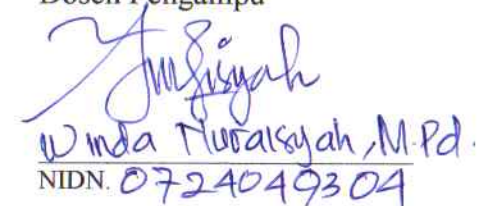 Dosen Pengampu
Winda Nuraisyah, M.Pd.
NIDN. 0724049304